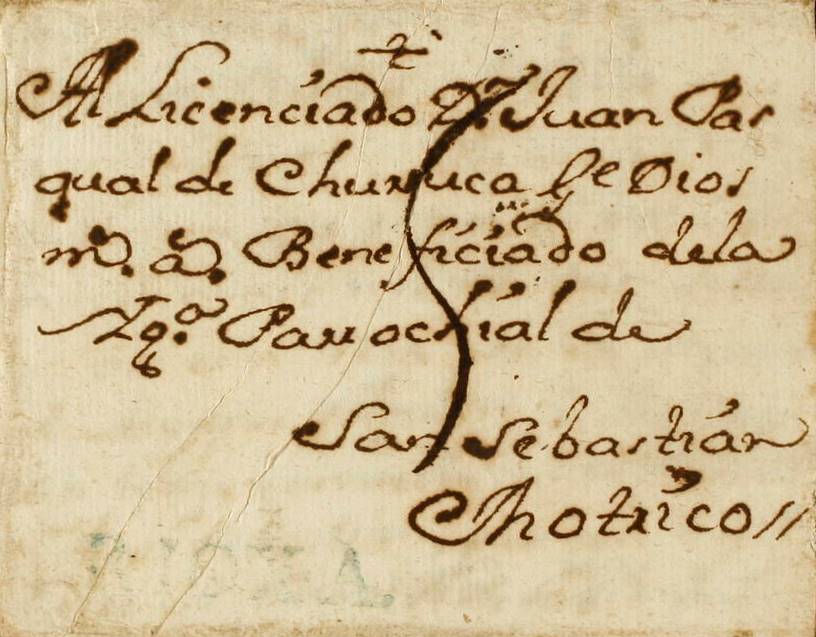 +
Al Licenciado Dn. Juan Pas
qual de Churruca Ge Dios
ms. as. Beneficiado dela
Yga. Parrochial de
San Sebastian
Motrico//